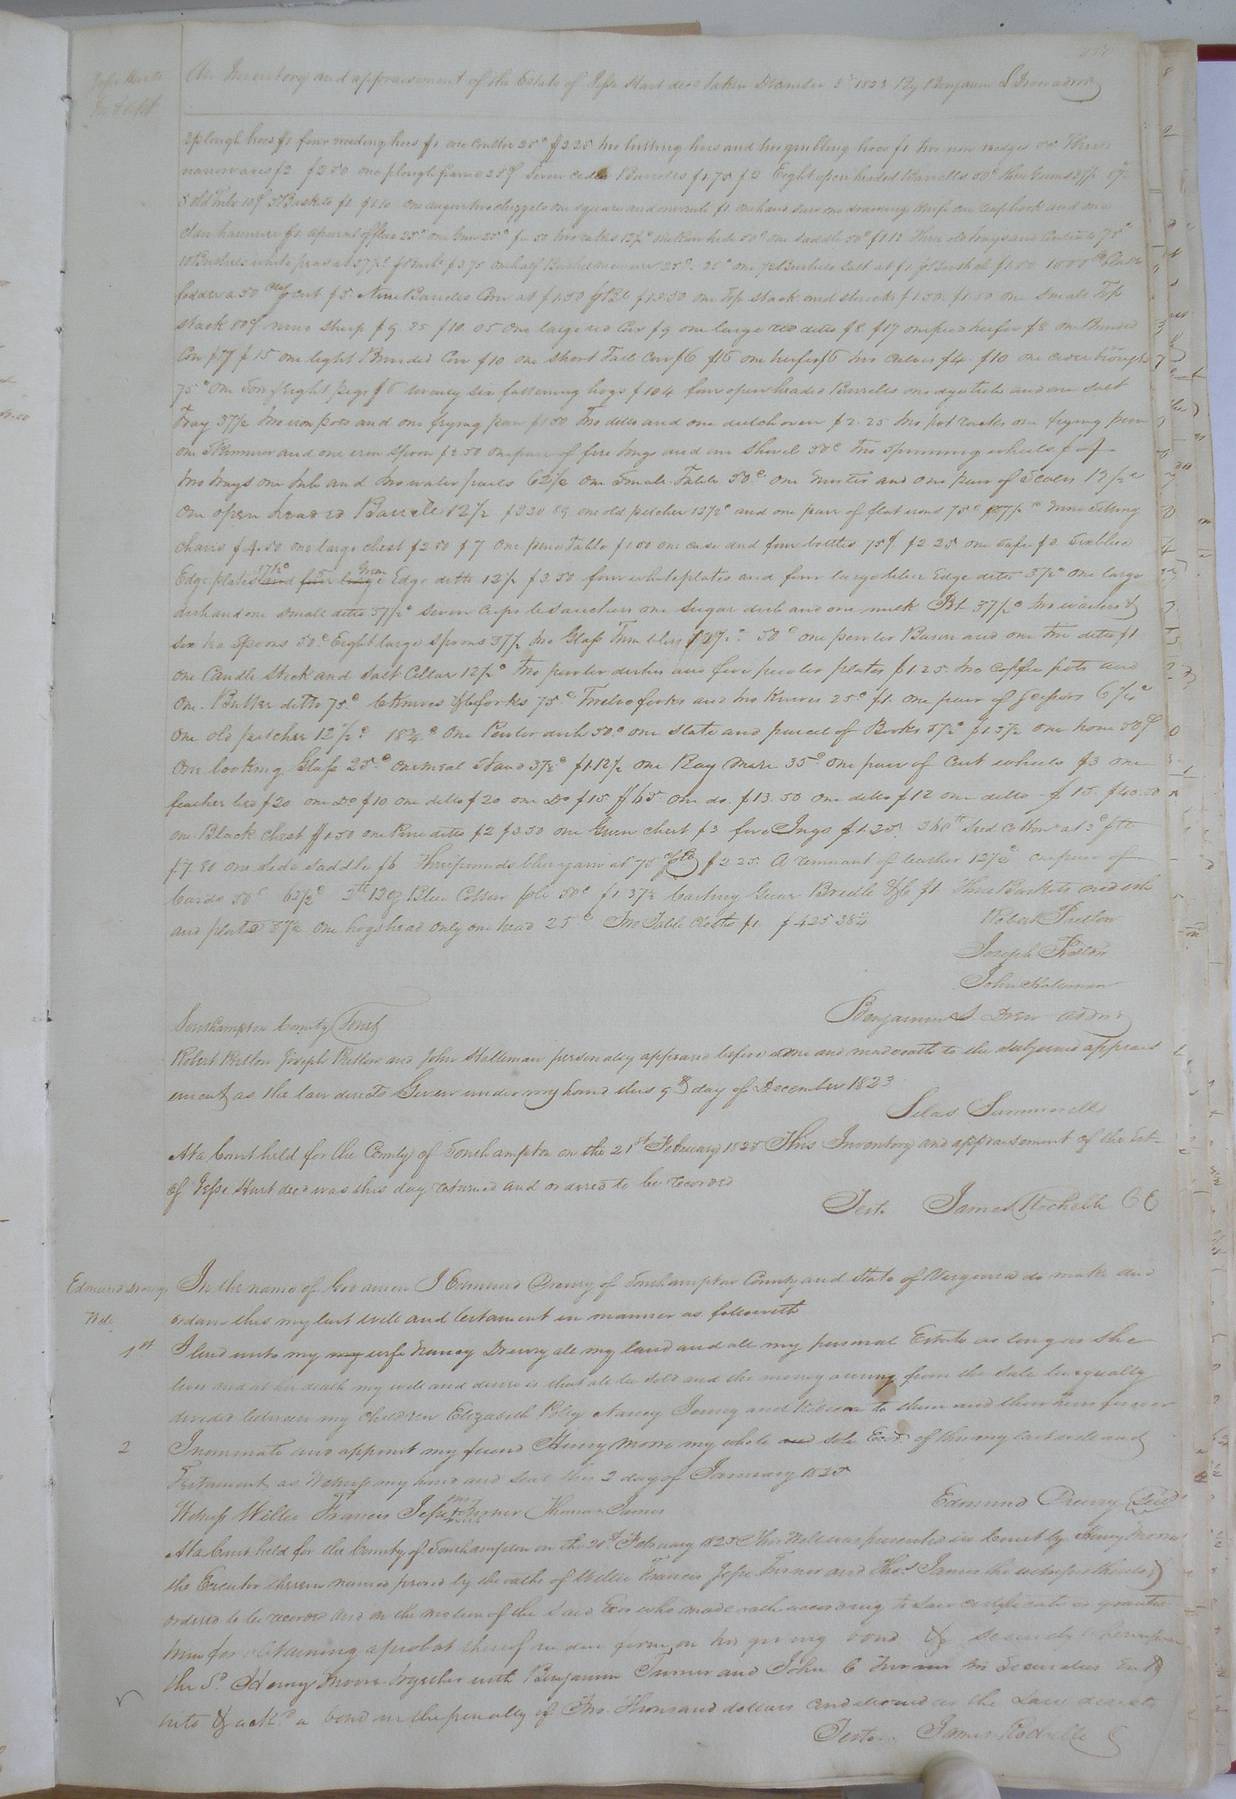 An Inventory and appraisement of the Estate of Jesse Hart decd taken December 5th 1823 By Benjamin S Drew admr
2 plough hoes $1 four weeding hoes $1 one Coulter 25c $2.25 two hilling hoes and two grubbing hoes $1 two iron wedges 50c Three
narrow axes $2 $3.50 one plough frame 25c Seven Cedar Barrels $1.75 $2 Eight open headed Barrells 50c Three Gums 37½
5 old Tubs 10c 3 Baskets $1 $1.10 One auger two chizzels one square and one rule $1 one hand saw one drawing knife one reap hook and one
claw hammer $1 a parcel of flax 25c one Gun 25c $2.50 two rakes 12½c one Raw hide 50c one saddle 50c $1.12 Three old trays and contents 75c
10 Bushels white peas at 37½c $ Bush $3.75 one half Bushel measure 25c 25c one ½ Bushels Salt at $1 $ Bushel $1.50 1000 lb Blade
fodder a 50 per Cent $5. Nine Barrels Corn at $1.50 $ Bl $13.50 one Top stack and shucks $1.50 $1.50 one small Top
stack 80c nine sheep $9.25 $10.05 One large red Cow $9 one large red ditto $8 $17 one pied heifer $8 one Brinded
Cow $7 $15 one light Brinded Cow $10 one short Tail Cow $6 $16 one heifer $6 two calves $4 $10 one
75c one Sow & eight pigs $6 twenty six fattening hogs $104 four open headed Barrells one dye tub and one salt
Tray 37½ two iron pots and one frying pan $1.50 Two ditto and one dutch oven $2.25 two pot racks one frying pan
one Skimmer and one iron Spoon $2.50 one pair of fire tongs and one Shovel 50c Two Spinning wheels $4
two trays one tub and two water pails 62½ one Small Table 50c One Sifter and one pair of Scales 12½c
one open headed Barrell 12½ one old pitcher 12½c and one pair of flat irons 75c 87½c Nine Sitting
chairs $4.50 one large chest $2.50 $7 One pine Table $1.00 one case and four bottles 75c $2.25 one Safe $2 Twelve
Edge plates and four large Green Edge ditto 12½ $3.50 four white plates and four large blue Edge ditto 37½c one large
dish and one small ditto 37½c Seven cups & sauchers one Sugar dish and one milk Pot 37½c two waiters &
six tea Spoons 50c Eight large spoons 37½ two Glass Tumblers 12½c 50c one pewter Bason and one Tin ditto $1
one Candle Stick and Salt Cellar 12½c Two pewter dishes and five pewter plates $1.25 two Coffee pots and
one Butter ditto 75c 6 Knives & 6 forks 75c Twelve forks and two Knives 25c $1. one pair of Scissors 6¼c
one old pitcher 12½c 18¾c One Pewter dish 50c one slate and parcel of Books 87½c $1.37½ one hone 50c
One looking Glass 25c one meal Stand 37½c $1.12½ one Bay Mare 35c one pair of Cart wheels $3 one
feather bed $20 one Do $10 one ditto $20 one Do $15 $65 one do. $13.50 one ditto $12 one ditto $15. $40.50
one Black chest $1.50 one Pine ditto $2 $3.50 one Green chest $3 five Jugs $1.25. 260 lb Seed Cotton at 3c $ lb
$7.80 one Side Saddle $6 Three pounds blue yarn at 75c $ lb $2.25 A remnant of leather 12½c one pair of
Cards 50c 62½c Blue Cotton 50c $1.37½ Carting Gear Bridle &c $1 Three Baskets one dish
and plate 37½ One hogshead only one head 25c Two Table Cloths $1 $425.28¼
Robert Pretlow
Joseph Pretlow
John Holleman
Benjamin S. Drew admr
Southampton County Towit
Robert Pretlow Joseph Pretlow and John Holleman personally appeared before me and made oath to the subjoined appraise
ment as the law directs Given under my hand this 9th day of December 1823
Silas Summerell
At a Court held for the County of Southampton on the 21st February 1825 This Inventory and appraisement of the Est
of Jesse Hart decd was this day returned and ordered to be recorded
Test. James Rochelle CC
Edmund Drewry
Will
In the name of God amen I Edmund Drewry of Southampton County and State of Virginia do make and
ordain this my last will and testament in manner as followeth
1st I lend unto my my wife Nancy Drewry all my land and all my personal Estate as long as she
lives and at her death my will and desire is that all be sold and the money arising from the sale be equally
divided between my children Elizabeth Polly Nancy Jenny and Rebecca to them and their heirs forever
2 I nominate and appoint my friend Henry Moore my whole and sole Exor. of this my last will and
Testament as Witness my hand and seal this 2 day of January 1825
Witness Willie Francis Jesse Turner Thomas James
Edmund Drewry Seal
At a Court held for the County of Southampton on the 21st February 1825 This Will was presented in Court by Henry Moore
the Executor therein named proved by the oaths of Willie Francis Jesse Turner and Thos James the witnesses thereto &
ordered to be recorded And on the motion of the said Exor who made oath according to Law certificate is granted
him for obtaining a probat thereof in due form on his giving bond & security Whereupon
the Sd Henry Moore together with Benjamin Turner and John C Turner his Securities Entd
into & ackd a bond in the penalty of Two Thousand dollars conditioned as the Law directs
Teste. James Rochelle C